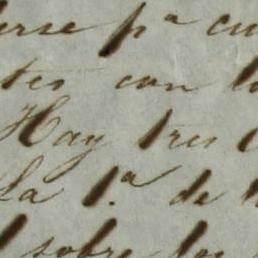 erse pª cu
tes con lo
Hay tres
La 1.ª de
sobre los